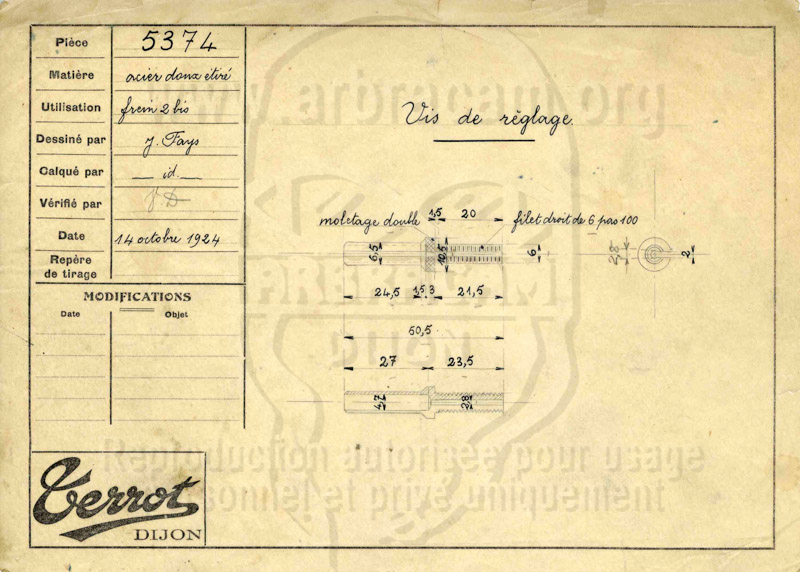 Pièce 5374
Matière acier doux étiré
Utilisation frein 2 bis
Dessiné par J. Fays
Calqué par id.
Vérifié par
Date 14 octobre 1924
Repère
de tirage
MODIFICATIONS
Date Objet
Vis de règlage.
moletage double 1,5 20 filet droit de 6 pas 100
6,5 10,5 6 2,8 2
24,5 1,5 3 21,5
50,5
27 23,5
4,7 2,8
Terrot
DIJON
www.arbracam.org
ARBRACAM
DIJON
Reproduction autorisée pour usage
personnel et privé uniquement